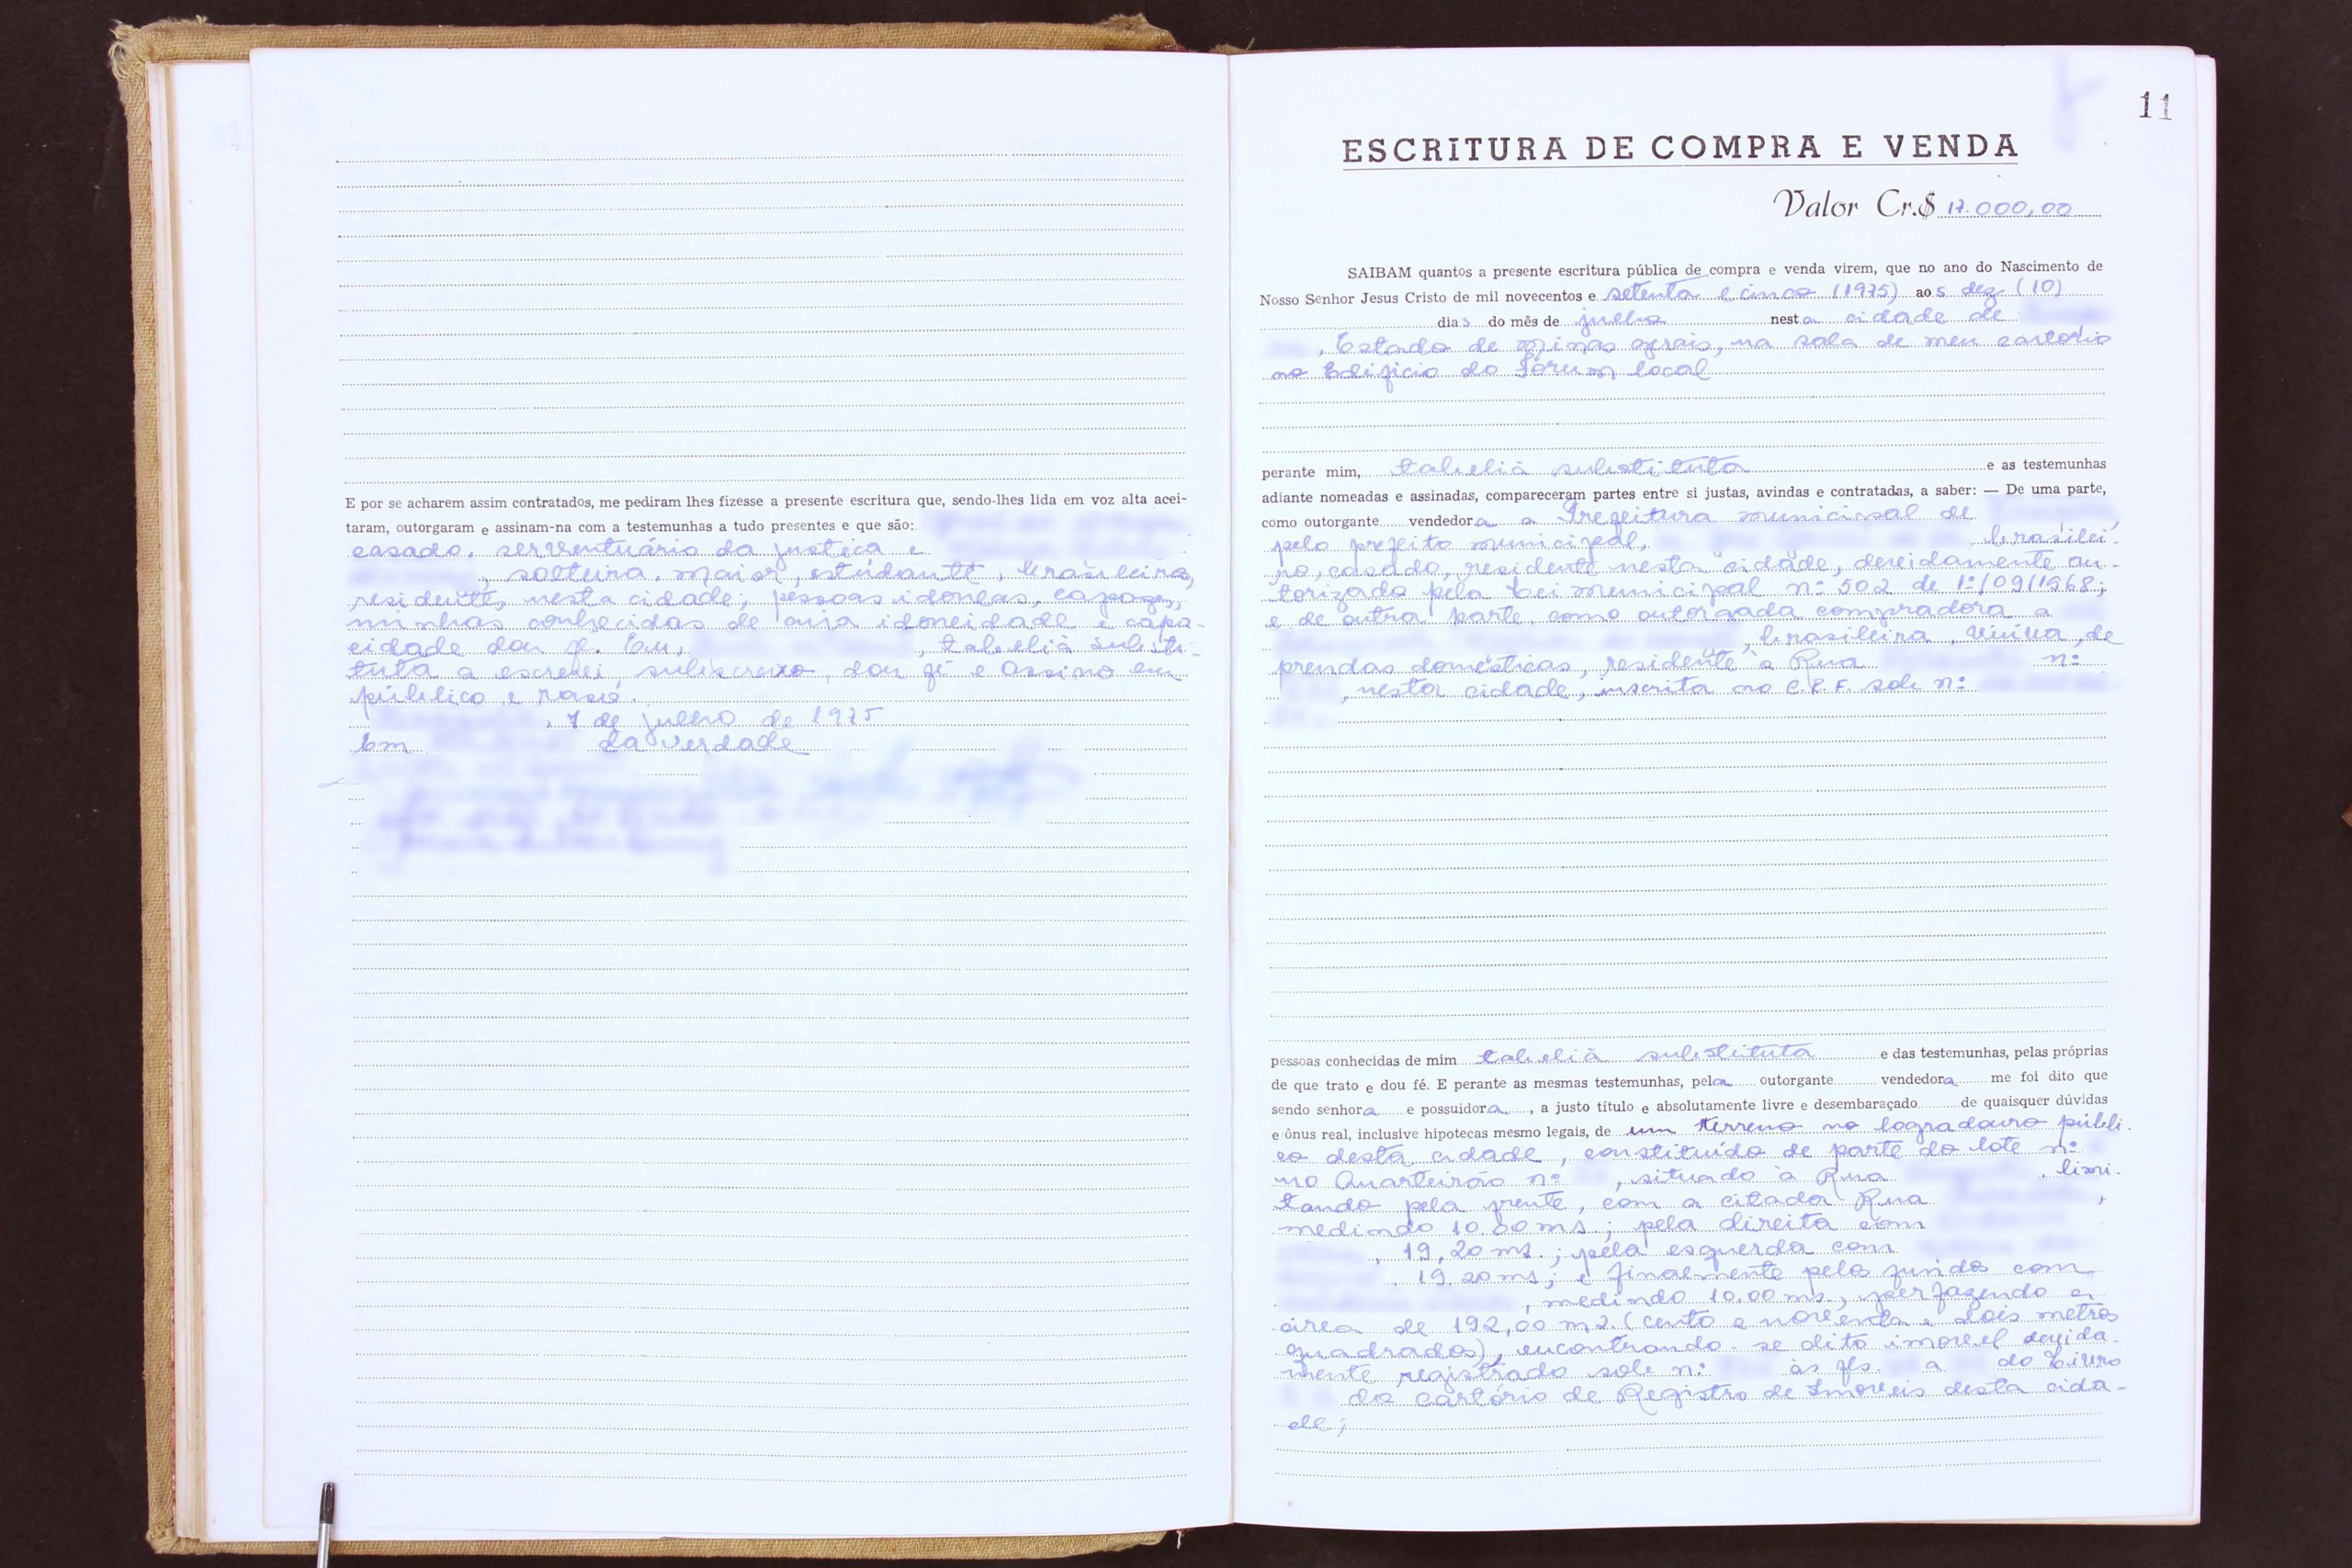 E por se acharem assim contratados, me pediram lhes fizesse a presente escritura que, sendo-lhes lida em voz alta acei-
taram, outorgaram e assinam-na com a testemunhas a tudo presentes e que são:
casado, serventuário da justiça e
, solteira, maior, estudante, brasileiros,
residentes nesta cidade; pessoas idoneas, capazes,
minhas conhecidas de cuja idoneidade e capa-
cidade dou fé. Eu, , tabeliã substi-
tuta a escrevi, subscrevo, dou fé e assino em
público e raso.
, 7 de julho de 1975
Em da verdade
11
ESCRITURA DE COMPRA E VENDA
Valor Cr.$ 17.000,00
SAIBAM quantos a presente escritura pública de compra e venda virem, que no ano do Nascimento de
Nosso Senhor Jesus Cristo de mil novecentos e setenta e cinco (1975) aos dez (10)
dias do mês de julho nesta cidade de
, Estado de Minas Gerais, na sala de meu cartório
no Edificio do Fórum local
perante mim, tabeliã substituta e as testemunhas
adiante nomeadas e assinadas, compareceram partes entre si justas, avindas e contratadas, a saber: — De uma parte,
como outorgante vendedora a Prefeitura municipal de
pelo prefeito municipal, brasilei-
ro, casado, residente nesta cidade, devidamente au-
torizado pela Lei municipal nº 502 de 1º/09/1968;
e de outra parte, como outorgada compradora a
, brasileira, viúva, de
prendas domésticas, residente à Rua nº
, nesta cidade, inscrita no C.P.F. sob nº
pessoas conhecidas de mim tabeliã substituta e das testemunhas, pelas próprias
de que trato e dou fé. E perante as mesmas testemunhas, pela outorgante vendedora me foi dito que
sendo senhora e possuidora, a justo título e absolutamente livre e desembaraçado de quaisquer dúvidas
e ônus real, inclusive hipotecas mesmo legais, de um terreno no logradouro públi-
co desta cidade, constituído de parte do lote nº
no Quarteirão nº , situado à Rua , limi-
tando pela frente, com a citada Rua ,
medindo 10.00 ms; pela direita com
, 19,20 ms.; pela esquerda com
, 19.20 ms; e finalmente pelos fundos com
, medindo 10.00 ms., perfazendo a
área de 192,00 m2. (cento e noventa e dois metros
quadrados), encontrando-se dito imovel devida-
mente registrado sob nº às fls. a do Livro
do cartório de Registro de Imoveis desta cida-
de;